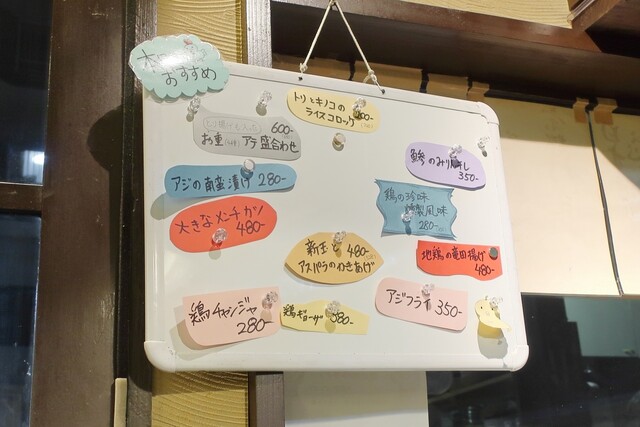 おすすめ
トリとキノコの
ライスコロッケ
600-
お重 アテ 盛合わせ
鯵のみりん干し
350-
アジの南蛮漬け 280-
鶏の珍味
燻製風味
280-
大きなメンチカツ
480-
新玉と 480-
アスパラのかきあげ
地鶏の竜田揚げ
480-
鶏チャンジャ
280-
鶏ギョーザ 380-
アジフライ 350-